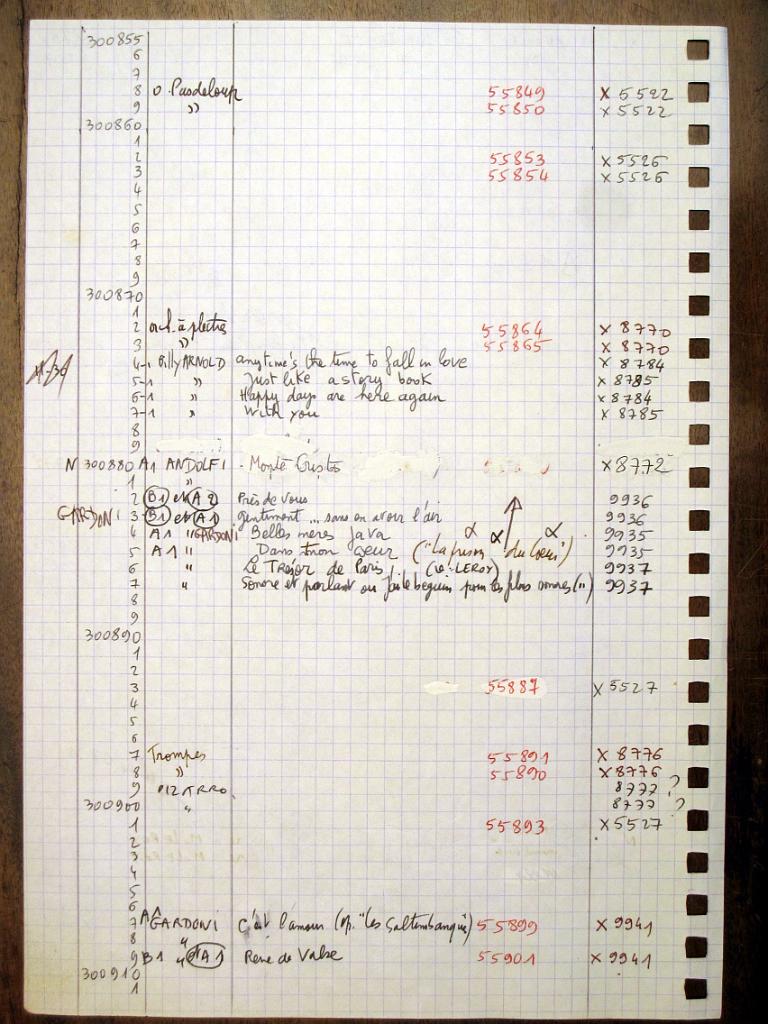 300855
6
7
8 o. Pasdeloup 55849 X 5522
9 " 55850 X 5522
300860
1
2 55853 X 5526
3 55854 X 5526
4
5
6
7
8
9
300870
1
2 orch. à plectres 55864 X 8770
3 " 55865 X 8770
4-1 Billy ARNOLD anytime's the time to fall in love X 8784
5-1 " Just like a story book X 8785
6-1 " Happy days are here again X 8784
7-1 " With you X 8785
8
9
N 300880 A1 ANDOLFI - Monte Cristo X 8772
1 "
2 B1 et A2 Près de vous 9936
GARDONI 3 B1 et A1 gentiment... sans en avoir l'air 9936
4 A1 " GARDONI Belles mères java α α α 9935
5 A1 " Dans mon cœur ("La prison du Cœur") 9935
6 " Le Trésor de Paris (v: LEROY) 9937
7 " Sonore et parlant ou j'ai le béguin pour les films sonores (") 9937
8
9
300890
1
2
3 55887 X 5527
4
5
6
7 Trompes 55891 X 8776
8 " 55890 X 8776
9 PIZARRO 8777 ?
300900 " 8777 ?
1 55893 X 5527
2
3
4
5
6
7 A1 GARDONI C'est l'amour (op. "Les Saltimbanques") 55899 X 9941
8 "
9 B1 " et A1 Reine de Valse 55901 X 9941
300910
1